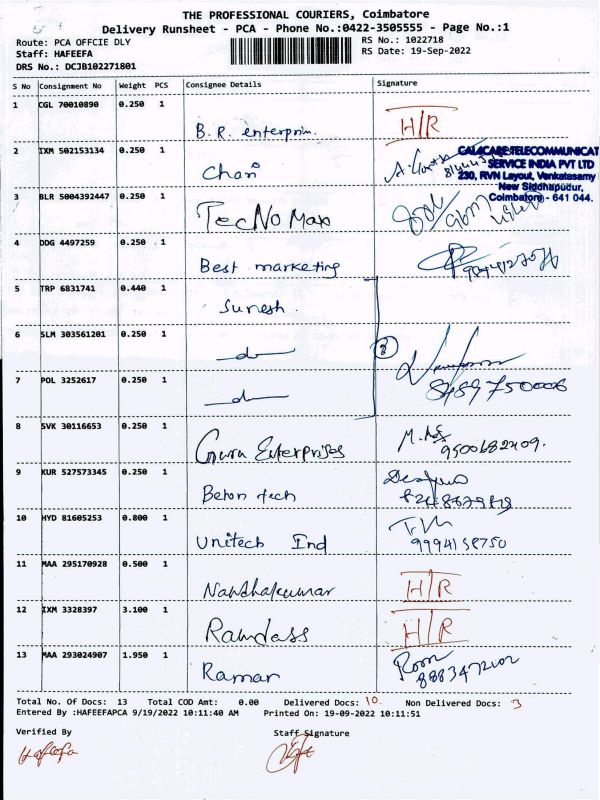 THE PROFESSIONAL COURIERS, Coimbatore
Delivery Runsheet - PCA - Phone No.:0422-3505555 - Page No.:1
Route: PCA OFFCIE DLY RS No.: 1022718
Staff: HAFEEFA RS Date: 19-Sep-2022
DRS No.: DCJB102271801
S No Consignment No Weight PCS Consignee Details Signature
1 CGL 70010890 0.250 1
B.R. enterprin. H/R
2 IXM 502153134 0.250 1
Chari
CALICARE TELECOMMUNICAT
SERVICE INDIA PVT LTD
230, RVN Layout, Venkatasamy
New Siddhapudur,
Coimbatore - 641 044.
3 BLR 5004392447 0.250 1
TecNo Max
4 DDG 4497259 0.250 1
Best marketing
5 TRP 6831741 0.440 1
Suresh.
6 SLM 303561201 0.250 1
do 3
7 POL 3252617 0.250 1
do 8489750006
8 SVK 30116653 0.250 1
Guru Enterprises 9500682409.
9 KUR 527573345 0.250 1
Beton tech
10 HYD 81605253 0.800 1
Unitech Ind 9994158750
11 MAA 295170928 0.500 1
Nandhakumar H/R
12 IXM 3328397 3.100 1
Ramdass H/R
13 MAA 293024907 1.950 1
Ramar 8883472102
Total No. Of Docs: 13 Total COD Amt: 0.00 Delivered Docs: 10 Non Delivered Docs: 3
Entered By :HAFEEFAPCA 9/19/2022 10:11:40 AM Printed On: 19-09-2022 10:11:51
Verified By Staff Signature
Hafeefa